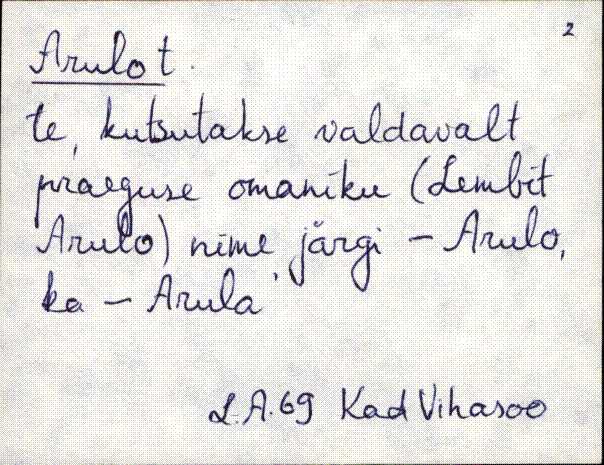 2
Arulo t.
te, kutsutakse valdavalt
praeguse omaniku (Lembit
Arulo) nime järgi – Arulo,
ka – Arula
L.A. 69 Kad Vihasoo